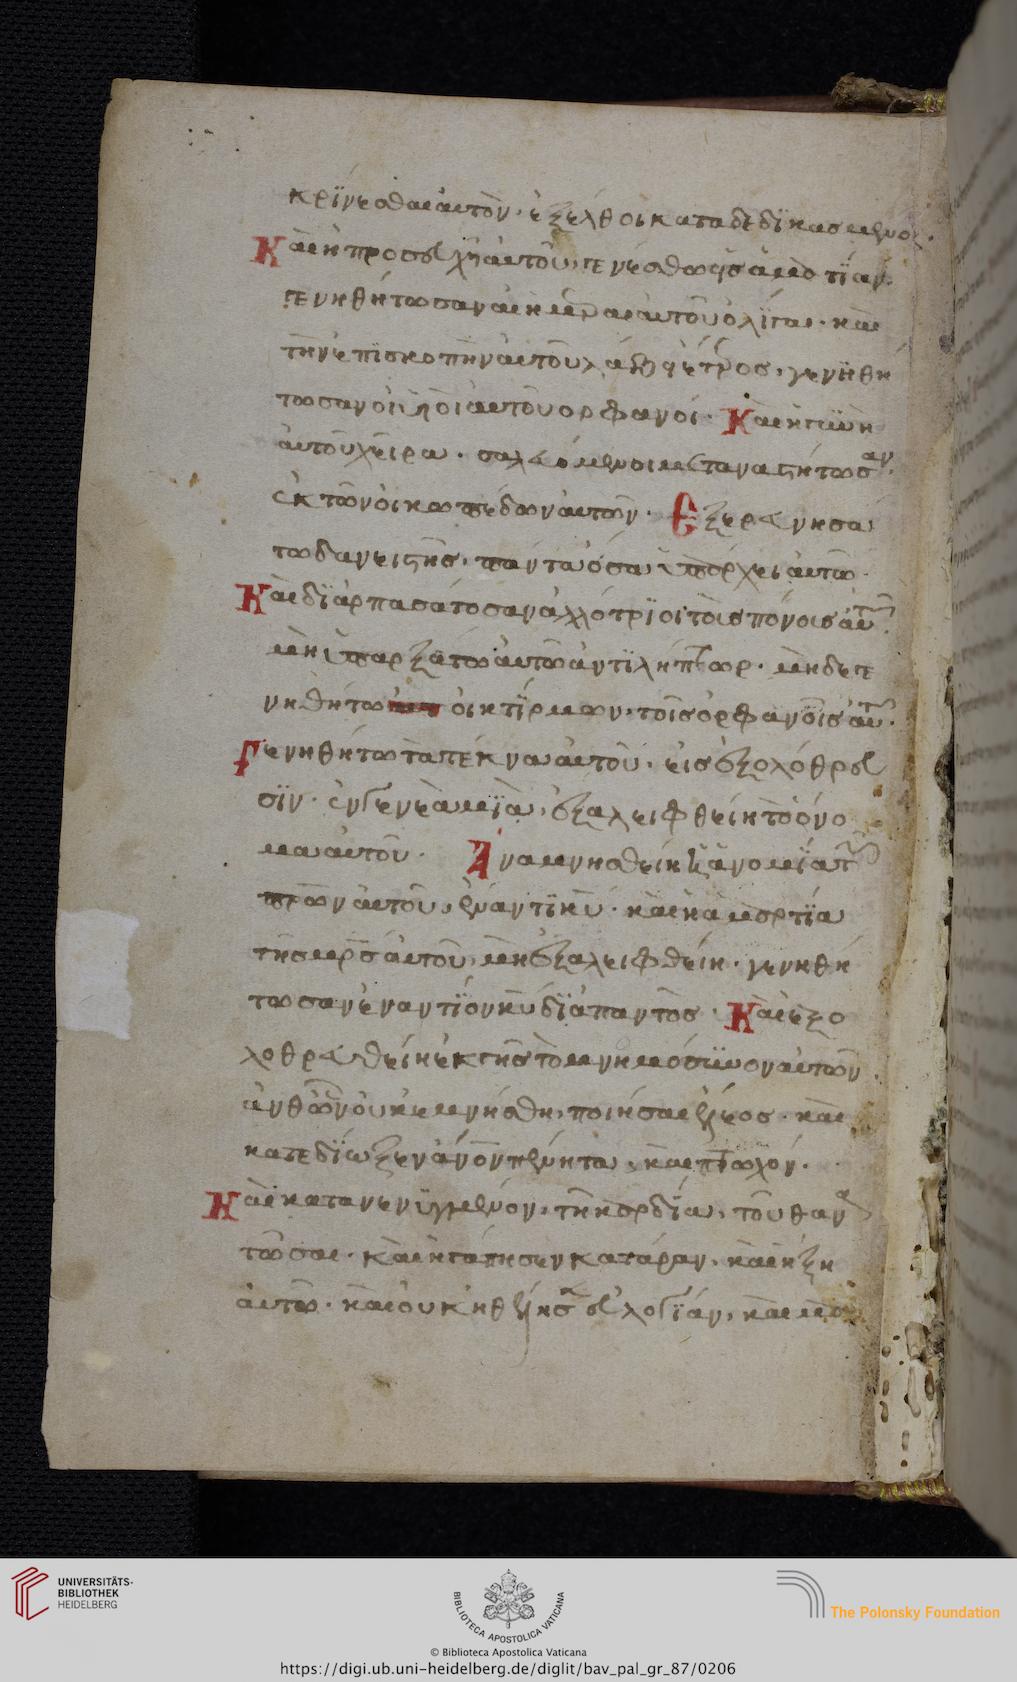 κρίνεσθαι αὐτὸν· ἐξέλθοι καταδεδικασμένος·
Καὶ ἡ προσευχὴ αὐτοῦ, γενέσθω εἰς ἁμαρτίαν·
γενηθήτωσαν αἱ ἡμέραι αὐτοῦ ὀλίγαι· καὶ
τὴν ἐπισκοπὴν αὐτοῦ λάβοι ἕτερος, γενηθή
τωσαν οἱ υἱοὶ αὐτοῦ ορφανοί· Καὶ ἡ γυνὴ
αὐτοῦ χείρα· σαλευόμενοι μεταναστήτωσαν
ἐκ τῶν οἰκωπέδων αὐτῶν· Εξερευνησα
τω δανειστὴς, πάντα ὅσα ὑπάρχει αὐτῶ·
Καὶ διαρπασάτοσαν ἀλλότριοι τοὺς πόνους αὐτοῦ·
μὴ ὑπαρξάτω αὐτῶ ἀντιλήπτωρ· μὴδὲ γε
νηθήτω οἰκτίρμων, τοῖς ὀρφανοῖς αὐτοῦ·
Γενηθήτω τὰ τέκνα αὐτοῦ, εἰς ἐξολόθρευ
σιν· ἐν γενεᾶ μιᾶ, ἐξαλειφθείη τὸ ὄνο
μα αὐτοῦ· Αναμνησθείη ἡ ἀνομία τῶν
πρων αὐτοῦ, ἐναντι κυ· καὶ ἡ ἁμαρτία
τῆς μρς αὐτοῦ, μὴ ἐξαλειφθείη· γενηθή
τωσαν ἐναντίον κυ διαπαντός· Καὶ ἐξο
λοθρευθείη ἐκ γῆς τὸ μνημόσυνον αὐτῶν
ἀνθ ὧν οὐκ ἐμνήσθη, ποιῆσαι ἔλεος· καὶ
κατεδίωξεν ἄνον πένητα, καὶ πτωχόν·
Καὶ κατανενυγμένον, τῆ καρδία, τοῦ θανα
τῶσαι· καὶ ἠγάπησεν κατάραν, καὶ ἥξη
αὐτῶ· καὶ οὐκ ἠθέλησεν εὐλογίαν, καὶ μα
UNIVERSITÄTS-
BIBLIOTHEK
HEIDELBERG
BIBLIOTECA APOSTOLICA VATICANA
The Polonsky Foundation
© Biblioteca Apostolica Vaticana
https://digi.ub.uni-heidelberg.de/diglit/bav_pal_gr_87/0206